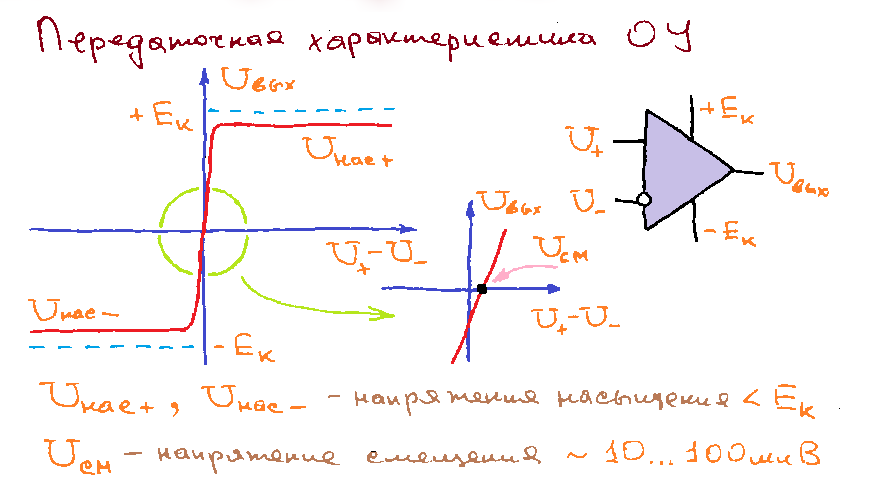 Передаточная характеристика ОУ
U вых
+ Eк
U нас+
U+ - U-
U нас-
- Eк
U вых
U см
U+ - U-
+ Eк
U+
U-
U вых
- Eк
U нас+ , U нас- - напряжения насыщения < Eк
U см - напряжение смещения ~ 10...100 мкВ